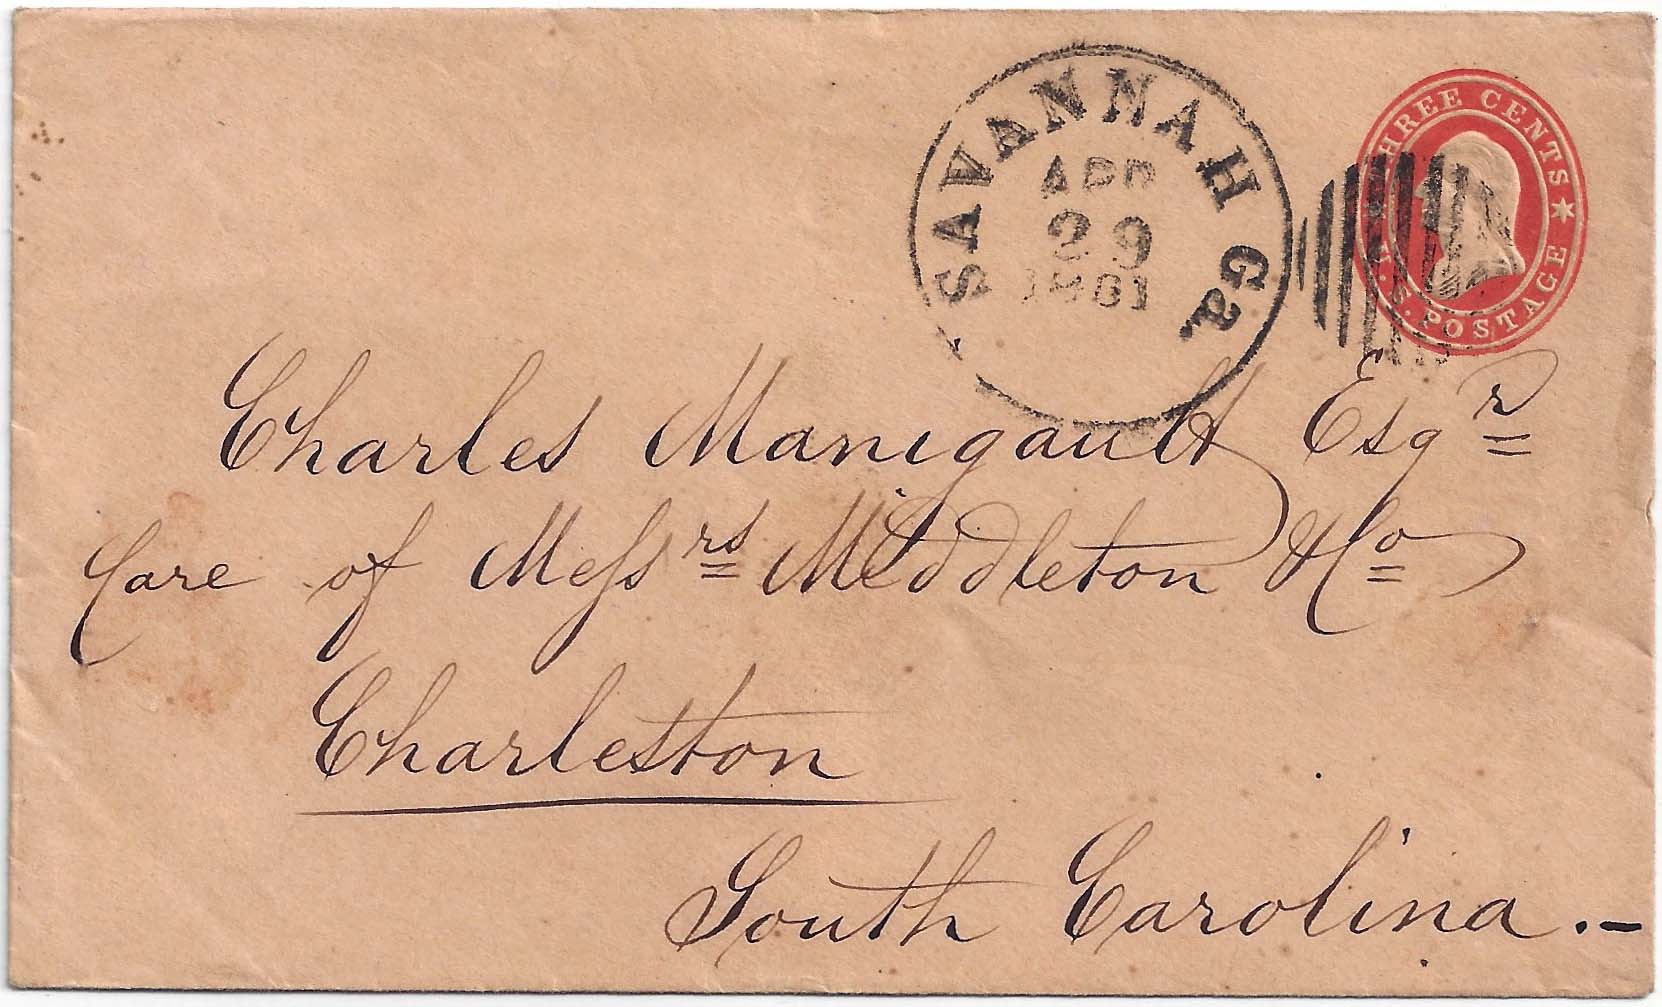 SAVANNAH Ga.
APR
29
1861
THREE CENTS
U.S. POSTAGE
Charles Manigault Esqr
Care of Messrs Middleton & Co
Charleston
South Carolina.-